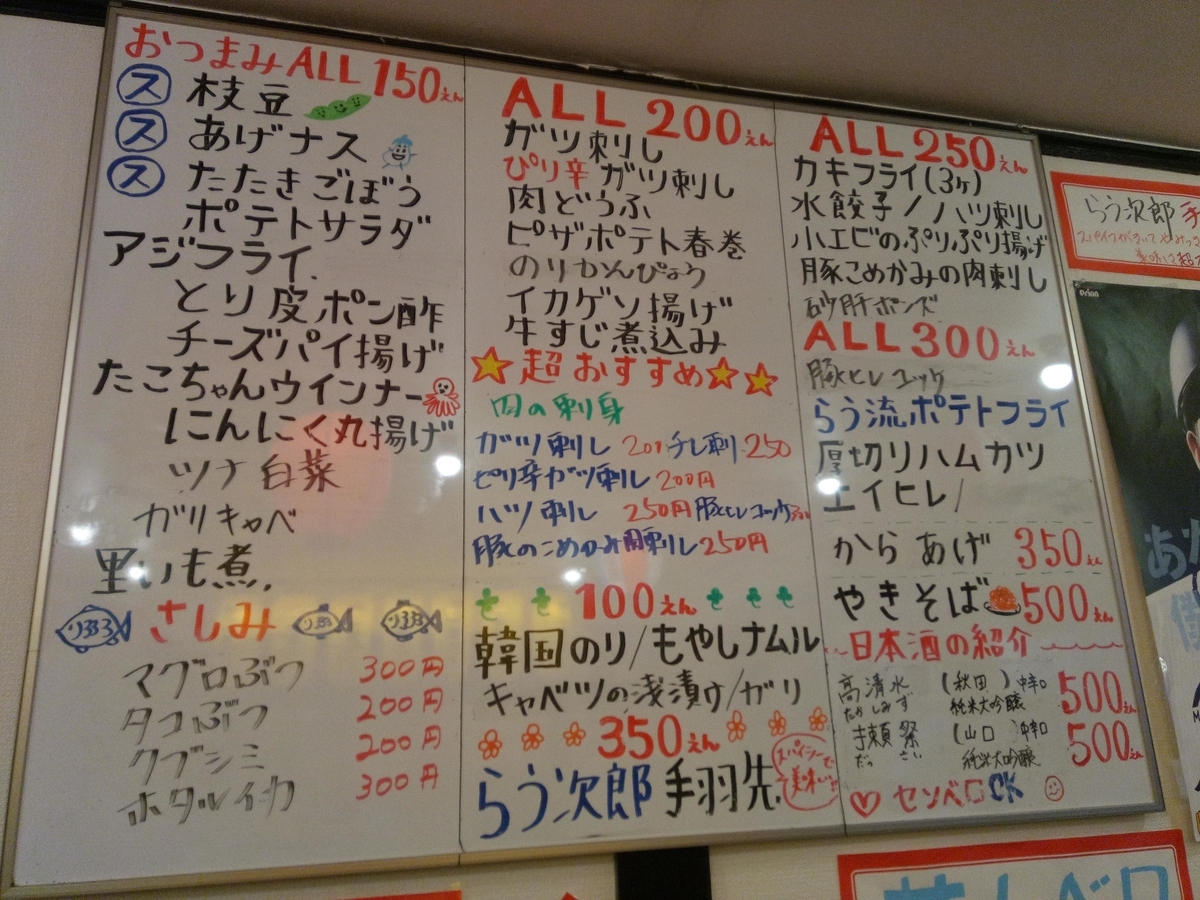 おつまみALL 150えん
ス 枝豆
ス あげナス
ス たたきごぼう
ポテトサラダ
アジフライ
とり皮ポン酢
チーズパイ揚げ
たこちゃんウインナー
にんにく丸揚げ
ツナ白菜
ガリキャベ
里いも煮
さしみ
マグロぶつ 300円
タコぶつ 200円
クブシミ 200円
ホタルイカ 300円
ALL 200えん
ガツ刺し
ぴり辛ガツ刺し
肉どうふ
ピザポテト春巻
のりかんぴょう
イカゲソ揚げ
牛すじ煮込み
超おすすめ
肉の刺身
ガツ刺し 201 チレ刺 250
ピリ辛ガツ刺し 200円
ハツ刺し 250円 豚ヒレユッケ
豚のこめかみ肉刺し 250円
100えん
韓国のり/もやしナムル
キャベツの浅漬け/ガリ
350えん
らう次郎 手羽先
スパイシーで
美味い
ALL 250えん
カキフライ(3ヶ)
水餃子/ハツ刺し
小エビのぷりぷり揚げ
豚こめかみの肉刺し
砂肝ポンズ
ALL 300えん
豚ヒレユッケ
らう流ポテトフライ
厚切りハムカツ
エイヒレ/
からあげ 350えん
やきそば 500えん
日本酒の紹介
高清水 (秋田)中辛口 500えん
たかしみず 純米大吟醸
獺祭 (山口 中辛口 500えん
だっさい 純米大吟醸
センベロOK
らう次郎 手
orion